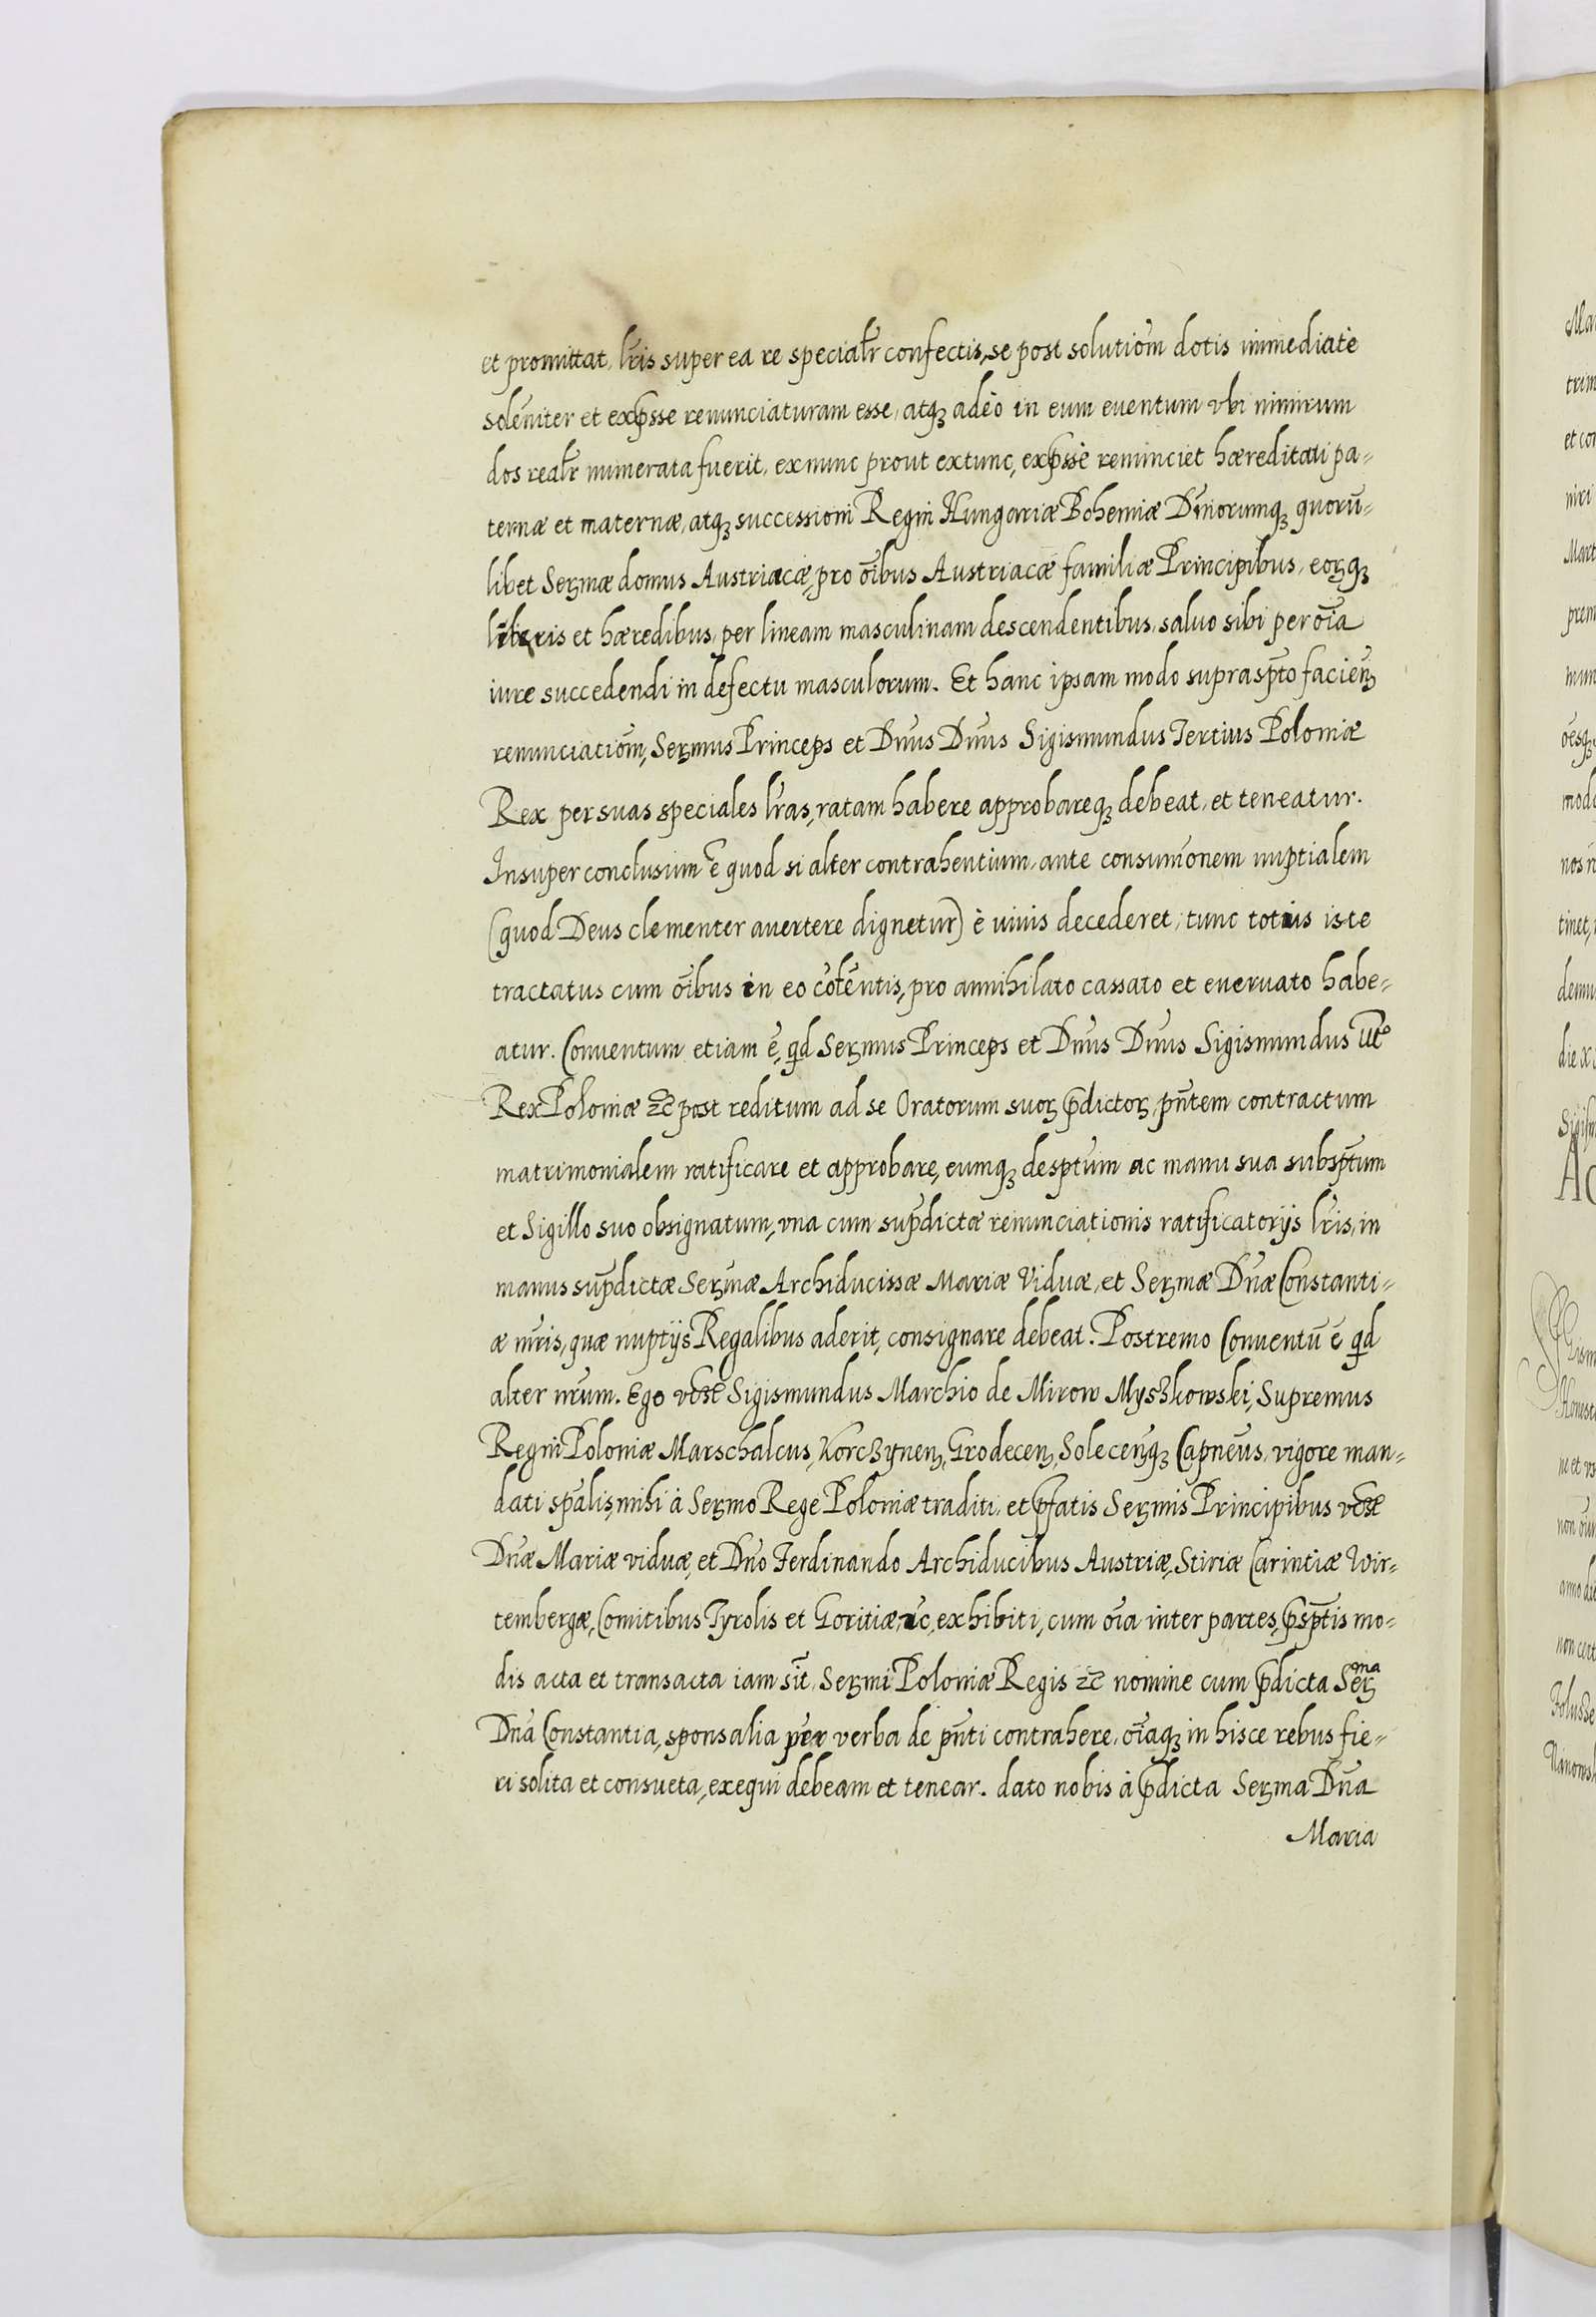 et promittat, lr̃is super ea re specialr̃ confectis, se post solutiom̃ dotis immediatè
solem̃niter et exp̃sse renunciaturam esse, atq₃ adeò in eum euentum vbi nimirum
dos realr̃ numerata fuerit, ex nunc prout extunc, exp̃ssè renunciet hæreditati pa=
ternæ et maternæ, atq₃ successioni Regni Hungariæ Bohemiæ Dñiorumq₃ quorũ=
libet Serꝫmæ domus Austriacæ, pro oĩbus Austriacæ familiæ Principibus, eorꝫq₃
liberis et hæredibus, per lineam masculinam descendentibus, saluo sibi per oĩa
iure succedendi in defectu masculorum. Et hanc ipsam modo suprasp̃to facienꝫ
renunciatiom̃, Serꝫmus Princeps et Dñus Dñus Sigismundus Tertius Poloniæ
Rex per suas speciales lr̃as, ratam habere approbareq₃ debeat, et teneatur.
Insuper conclusum ẽ quod si alter contrahentium, ante consum̃onem nuptialem
(quod Deus clementer auertere dignetur) è viuis decederet, tunc totus iste
tractatus cum oĩbus in eo cõtẽntis, pro annihilato cassato et eneruato habe=
atur. Conuentum etiam ẽ, qd̃ Serꝫmus Princeps et Dñus Dñus Sigismundus ut̃
Rex Poloniæ ⁊c̃ post reditum ad se Oratorum suorꝫ p̃dictorꝫ, pñtem contractum
matrimonialem ratificare et approbare, eumq₃ desp̃tum ac manu sua subsp̃tum
et Sigillo suo obsignatum, vna cum sup̃dictæ renunciationis ratificatorijs lr̃is, in
manus sup̃dictæ Serꝫmæ Archiducissæ Mariæ Viduæ, et Serꝫmæ Dñæ Constanti=
æ mr̃is, quæ nuptijs Regalibus aderit, consignare debeat. Postremo Conuentũ ẽ qd̃
alter nr̃um. Ego vose Sigismundus Marchio de Mirow Myszkowski, Supremus
Regni Poloniæ Marschalcus, Korczynenꝫ, Grodecenꝫ, Solecenꝫq₃ Capneus̃, vigore man=
dati sp̃alis, mihi à Serꝫmo Rege Poloniæ traditi, et p̃fatis Serꝫmis Principibus vose
Dñæ Mariæ viduæ, et Dño Ferdinando Archiducibus Austriæ, Stiriæ Carintiæ Wir=
tembergæ, Comitibus Tyrolis et Goritiæ, ⁊c, exhibiti, cum oĩa inter partes, p̃sp̃tis mo=
dis acta et transacta iam sĩt, Serꝫmi Poloniæ Regis ⁊c̃ nomine cum p̃dicta Serꝫma
Dña Constantia, sponsalia per verba de pñti contrahere, oĩaq₃ in hisce rebus fie=
ri solita et consueta, exequi debeam et tenear. dato nobis à p̃dicta Serꝫma Dña
Maria